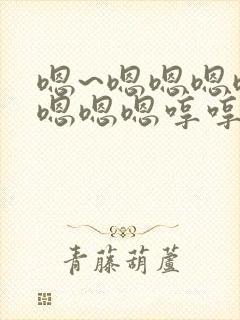 嗯~嗯嗯嗯
嗯嗯嗯哼哼
青藤葫蘆